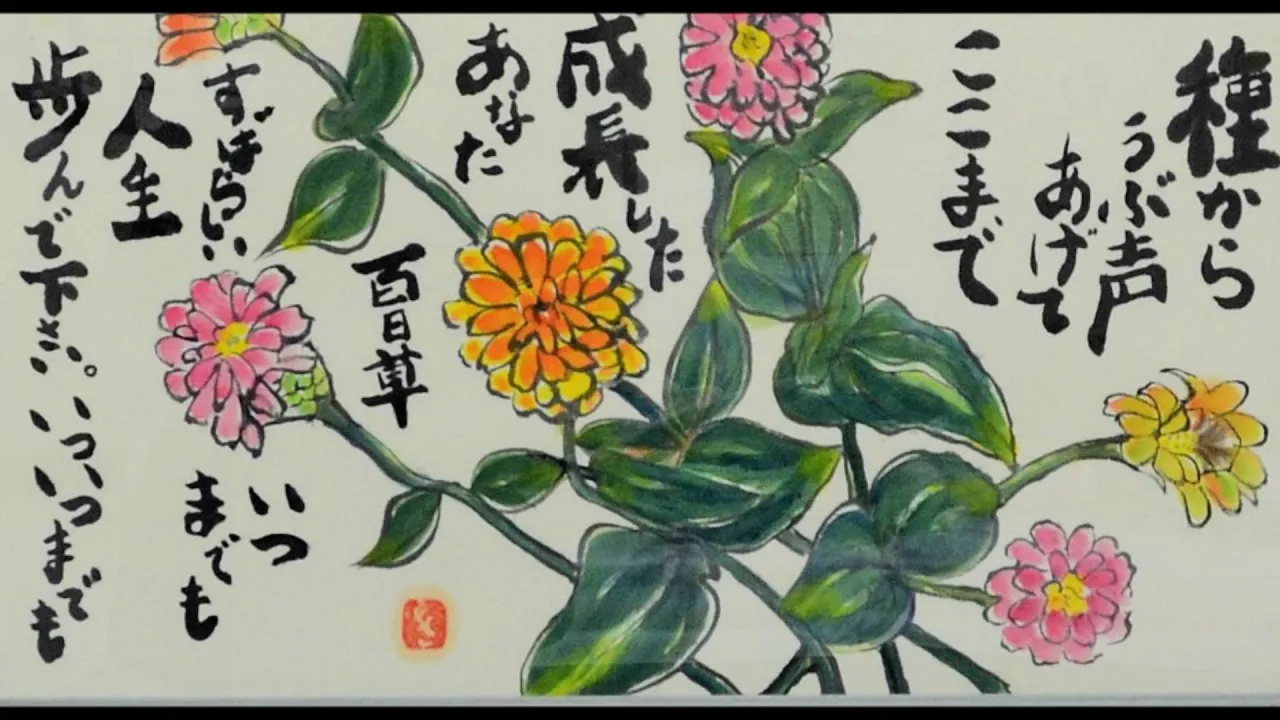 種から
うぶ声
あげて
ここまで
成長
した
あなた
百日草
すばらしい
人生
歩んで下さい。
いつ
までも
いついつまでも